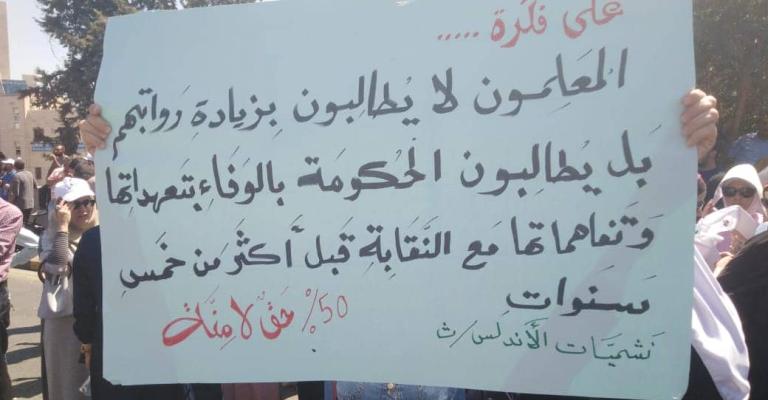 على فكرة .....
المعلمون لا يُطالبون بِزيادةِ رواتبهم
بَل يُطالِبون الحُكومَة بالوَفاءِ بتَعهداتِها
وَتَفاهماتها مَع النَّقابةِ قَبل أكثَر مَن خَمسِ
سَنَواتِ
50% حَقٌ لا مِنَّة
نَشميَّات الأَندلس/ث